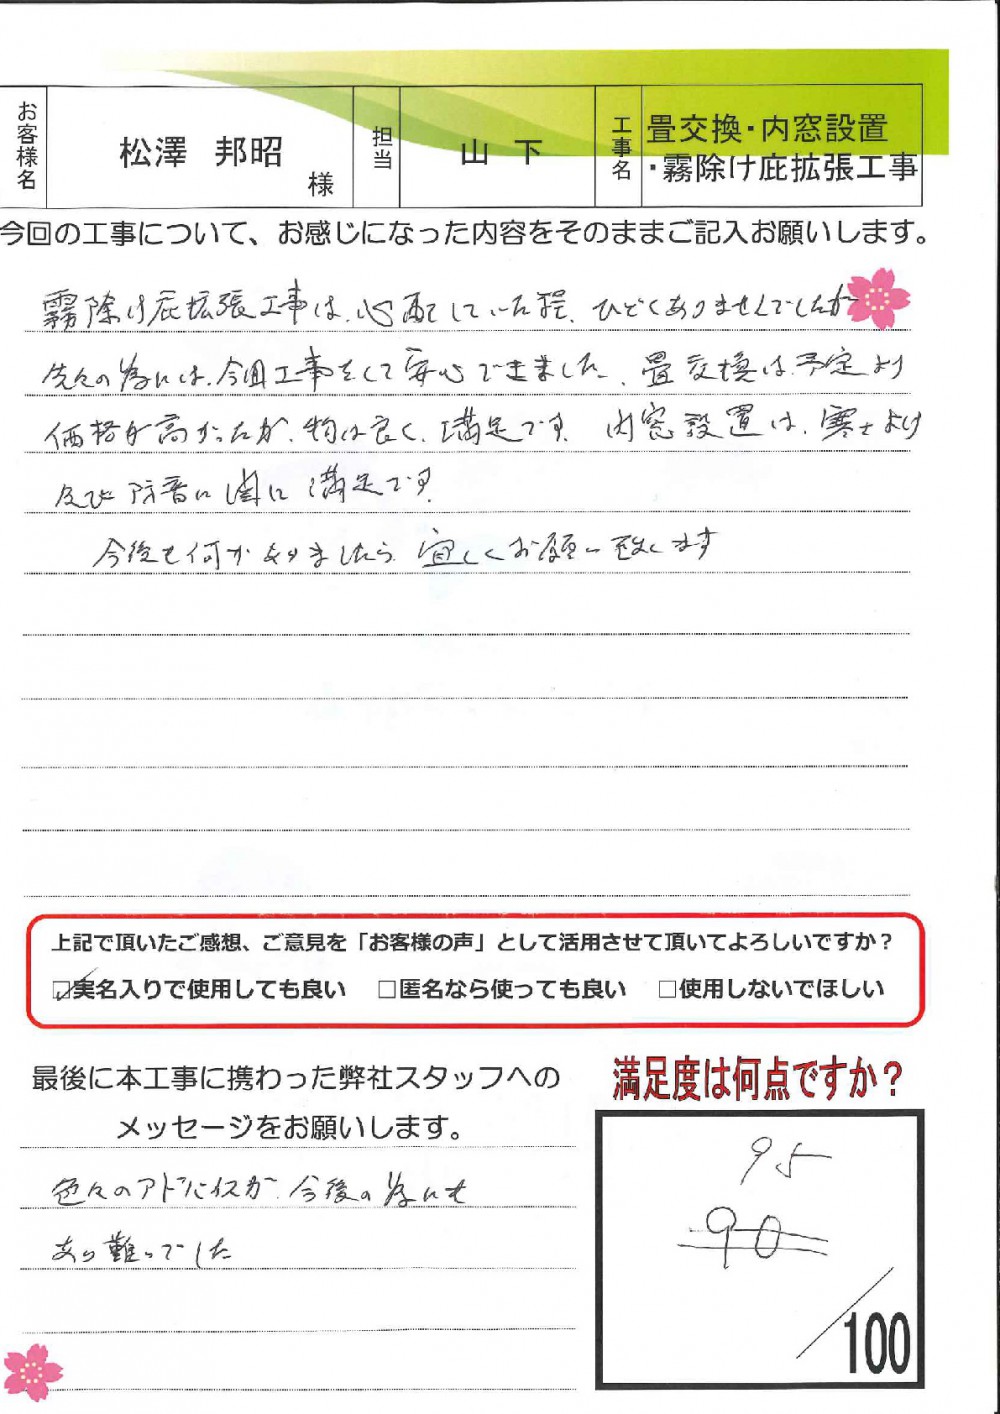 お客様名
松澤 邦昭 様
担当
山下
工事名
畳交換・内窓設置
・霧除け庇拡張工事
今回の工事について、お感じになった内容をそのままご記入お願いします。
霧除け庇拡張工事は、心配していた程、ひどくありませんでしたが
先々の為には、今回工事をして安心できました、畳交換は予定より
価格が高かったが、物は良く、満足です。内窓設置は、寒さよけ
及び防音に関に満足です
今後も何かありましたら、宜しくお願い致します
上記で頂いたご感想、ご意見を「お客様の声」として活用させて頂いてよろしいですか？
☑実名入りで使用しても良い □匿名なら使っても良い □使用しないでほしい
最後に本工事に携わった弊社スタッフへの
メッセージをお願いします。
色々のアドバイスが、今後の為にも
あり難っでした
満足度は何点ですか？
95
90
/100